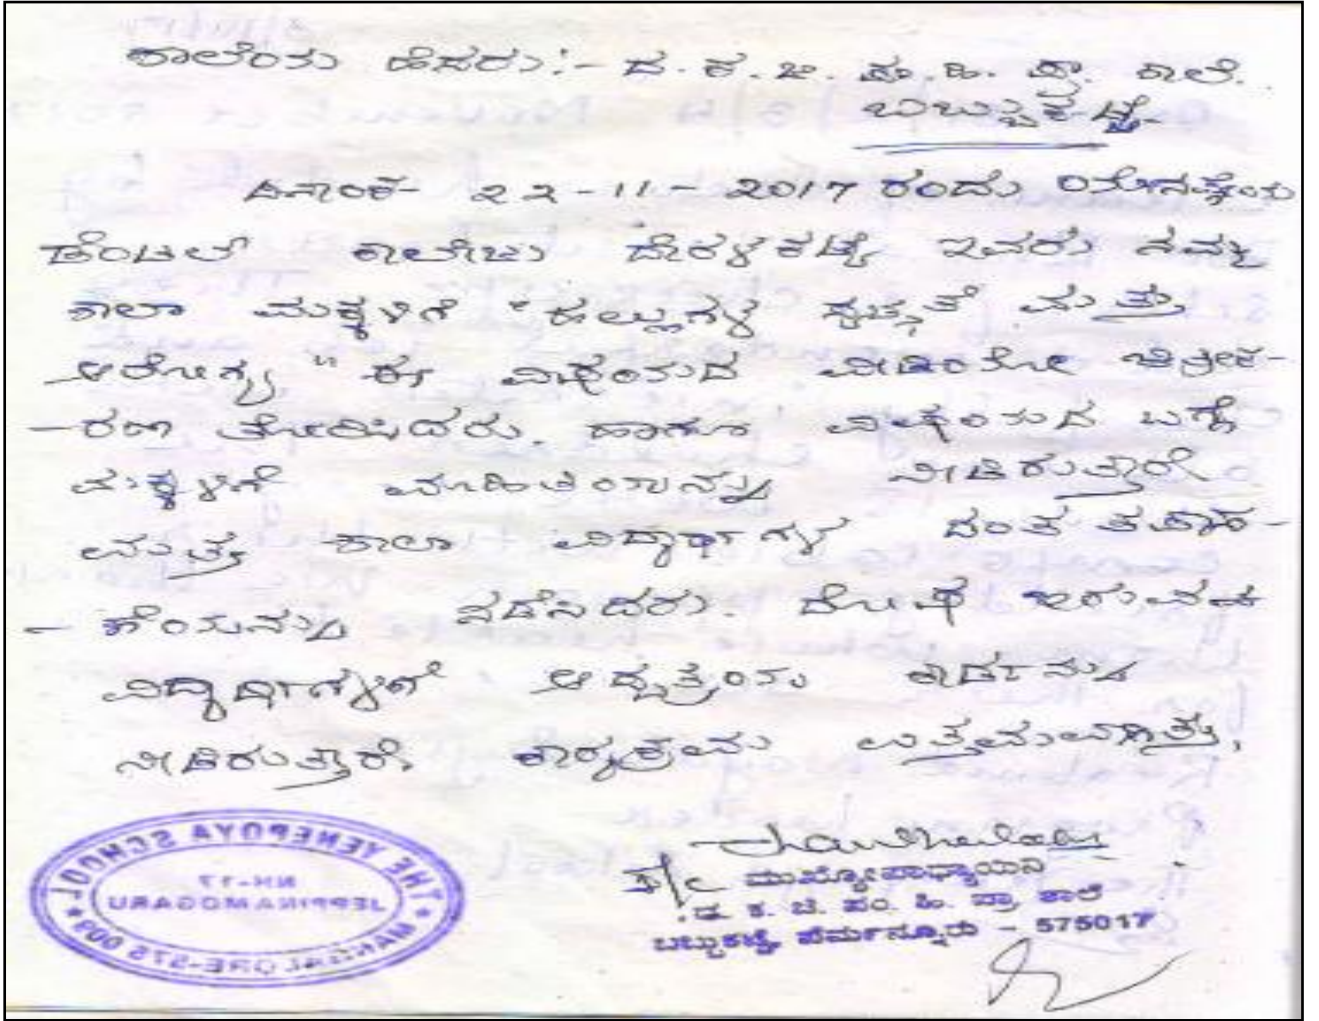 ಶಾಲೆಯ ಹೆಸರು:- ದ.ಕ.ಜಿ.ಪಂ.ಹಿ.ಪ್ರಾ. ಶಾಲೆ.
ಬಬ್ಬುಕಟ್ಟೆ
ದಿನಾಂಕ- 22-11-2017 ರಂದು ಯೇನಪ್ಪೋಯ
ಡೆಂಟಲ್ ಕಾಲೇಜು ದೇರಳಕಟ್ಟೆ ಇವರು ನಮ್ಮ
ಶಾಲಾ ಮಕ್ಕಳಿಗೆ "ಹಲ್ಲುಗಳ ಸ್ವಚ್ಛತೆ ಮತ್ತು
ಆರೋಗ್ಯ" ಈ ವಿಷಯದ ವೀಡಿಯೋ ಚಿತ್ರೀಕ-
-ರಣ ತೋರಿಸಿದರು. ಹಾಗೂ ವಿಷಯದ ಬಗ್ಗೆ
ಮಕ್ಕಳಿಗೆ ಮಾಹಿತಿಯನ್ನು ನೀಡಿರುತ್ತಾರೆ
ಮತ್ತು ಶಾಲಾ ವಿದ್ಯಾರ್ಥಿಗಳ ದಂತ ತಪಾಸ-
-ಣೆಯನ್ನು ನಡೆಸಿದರು. ದೋಷ ಇರುವಂತಹ
ವಿದ್ಯಾರ್ಥಿಗಳಿಗೆ ಆದ್ಯತೆಯ ಕಾರ್ಡನ್ನು
ನೀಡಿರುತ್ತಾರೆ. ಕಾರ್ಯಕ್ರಮ ಉತ್ತಮವಾಗಿತ್ತು.
ಮುಖ್ಯೋಪಾಧ್ಯಾಯಿನಿ
ದ. ಕ. ಜಿ. ಪಂ. ಹಿ. ಪ್ರಾ. ಶಾಲೆ
ಬಬ್ಬುಕಟ್ಟೆ, ಪೆರ್ಮನ್ನೂರು - 575017
THE YENEPOYA SCHOOL
NH-17
JEPPINAMOGARU
MANGALORE-575 003